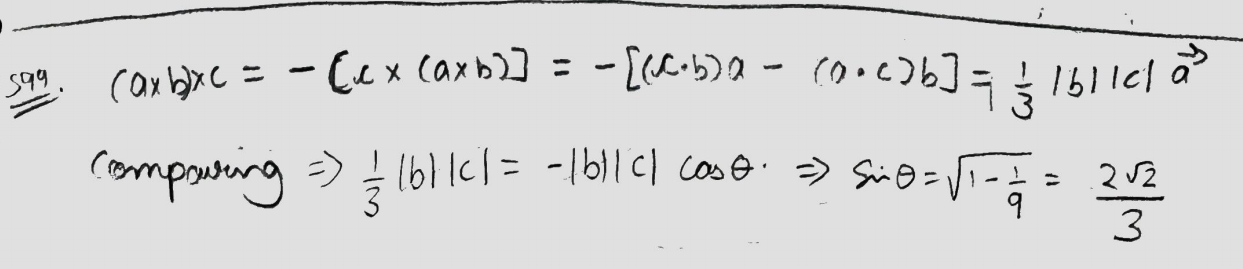 S99. (a×b)×c = - [c × (a×b)] = - [(c·b)a - (a·c)b] = 1/3 |b||c| a⃗
Comparing ⇒ 1/3 |b||c| = -|b||c| cosθ. ⇒ Sinθ = √(1 - 1/9) = 2√2/3